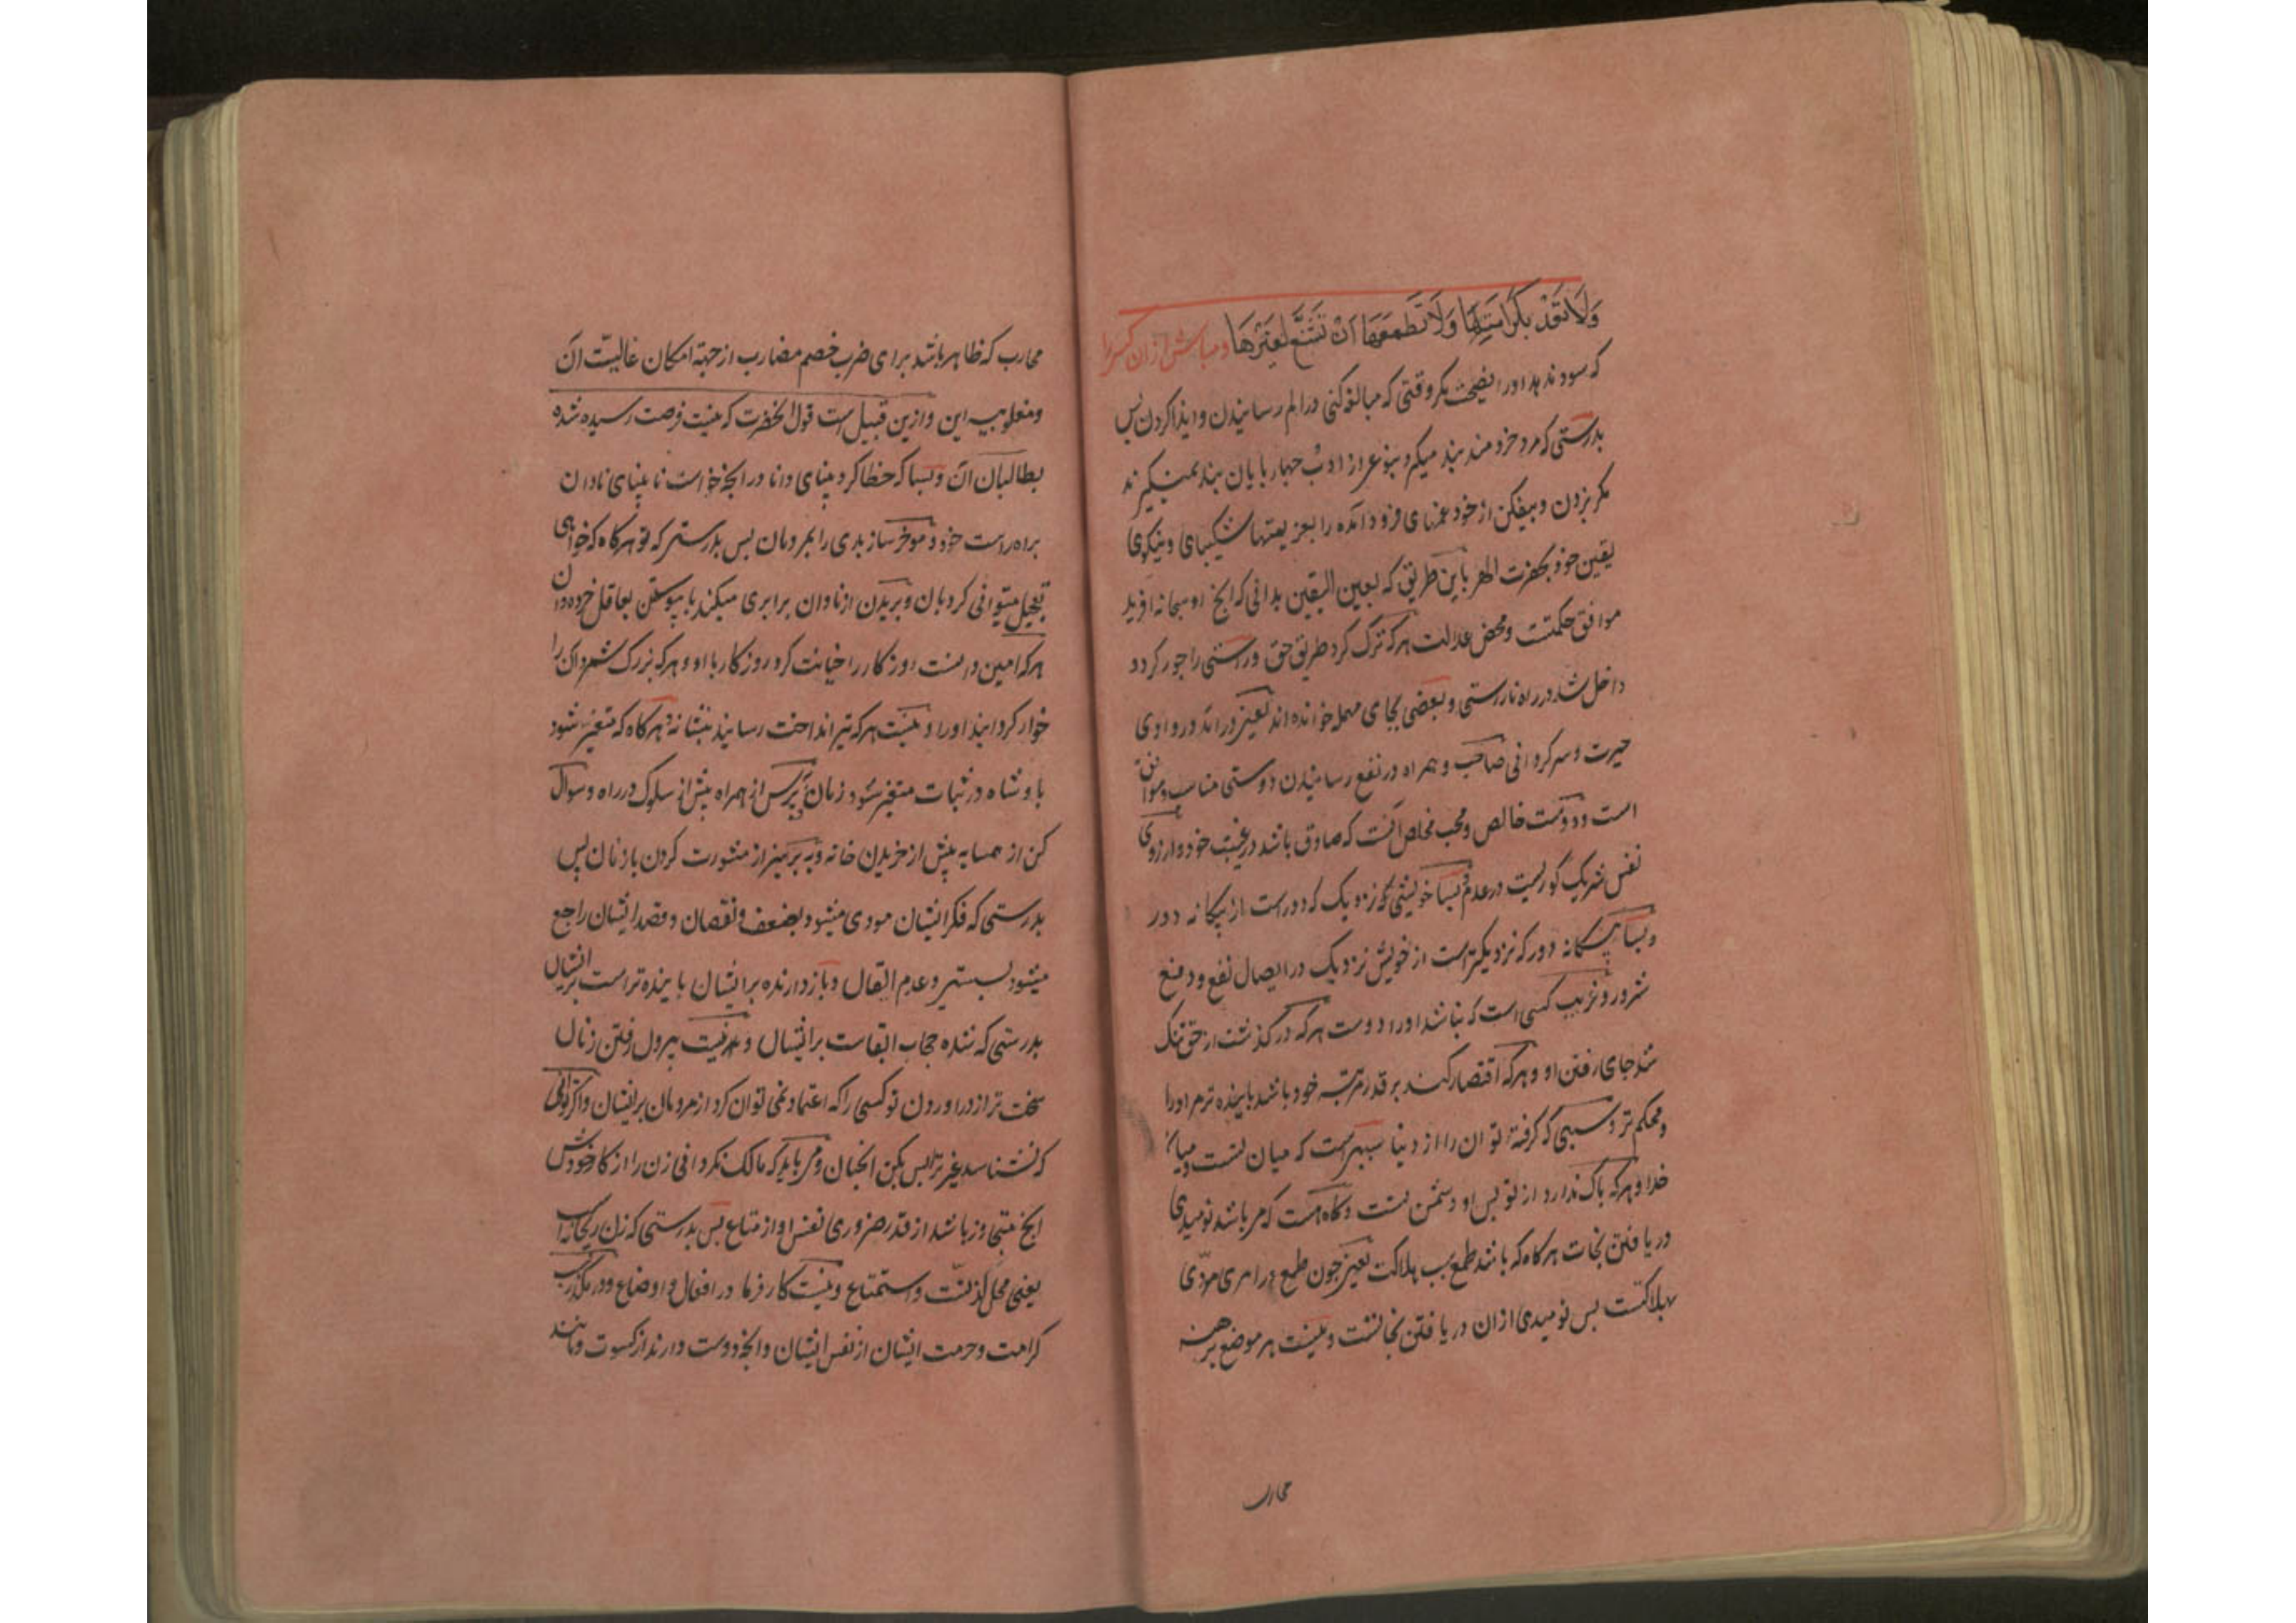 وَلَا تَعْدُ بِكَرَامَتِهَا وَلَا تُطْمِعْهَا اَنْ تَشْفَعَ لِغَيْرِهَا ومباش ازان کسیرا
که سود ندهد اورا نصیحت مکر وقتی که مبالغه کنی در الم رسانیدن و ایذا کردن پس
بدرستی که مرد خردمند پند میکیرد بنوعی از ادب چهار پایان پند نمیکیرند
مکر بزدن و بیفکن از خود غمهای فرود آمده را بعزیمتهای شکیبای و نیکوی
یقین خود بحضرت الهی باین طریق که بعین الیقین بدانی که انچ او سبحانه افرید
موافق حکمتت و محض عدالت هرکه ترک کرد طریق حق و راستی را جور کرد و
داخل شد در راه ناراستی و بعضی بجای مهمله خوانده اند یعنی در آمد در وادی
حیرت و سرکردانی صاحب و همراه در نفع رسانیدن دوستی مناسب و موافق
است و دوست خالص و محب مخلص آنست که صادق باشد در غیبت خود و ارزوی
نفس شریک کوریست در عدم و بسا خویشی که نزدیک که دورست از بیکانه دور
و بسا بیکانه دور که نزدیکترست از خویش نزدیک در ایصال نفع و دفع
شرور و غریب کسی است که نباشد اورا دوست هرکه در کذشت از حق تنک
شد جای رفتن او و هرکه اقتصار کند بر قدر مرتبه خود باشد پاینده تر مر اورا
و محکم تر سببی که کرفته تو ان را از دنیا سببیست که میان تست و میان
خدا و هرکه باک ندارد از تو پس او دشمن تست و کاه است که مر باشد نومیدی
در یافتن نجات هرکاه که باشد طمع سبب هلاکت یعنی چون طمع در امری مؤدی
بهلاکتست پس نومیدی ازان در یافتن نجاتست و نیست هر موضع برهنه
محارب
محارب که ظاهر باشد برای ضرب خصم مضارب از جهة امکان غالبیّت آن
و مغلوبیه این و ازین قبیل است قول انحضرت که نیست فرصت رسیده شده
بطالبان آن و بسا که خطا کرد بینای دانا در انچه خواست نابینای نادان
براه راست خود و موخر ساز بدی را بمردمان پس بدرستی که تو هرکاه که خواهی
تعجیل میتوانی کرد بان و بریدن از نادان برابری میکند با پیوستن بعاقل خرده دان
هرکه امین دانست روزکار را خیانت کرد روزکار با او و هرکه بزرک شمرد آن را
خوار کردانید اورا و نیست هرکه تیر انداخت رسانید بنشانه و هرکاه که متغیر شود
پادشاه در ثبات متغیر شود زمان و بپرس از همراه پیش از سلوک در راه و سوال
کن از همسایه پیش از خریدن خانه و بپرهیز از مشورت کردن با زنان پس
بدرستی که فکر ایشان مودی میشود بضعف و نقصان و قصد ایشان راجع
میشود بسستی و عدم اتقال و باز دارنده بر ایشان پاینده تر است بر ایشان
بدرستی که شده حجاب ابقاست بر ایشان و نیست بیرون رفتن زنان
سخت تر از دراوردن تو کسی را که اعتماد نمی توان کرد از مردمان بر ایشان و اکر توانی
که نشناسد غیر ترا پس بکن انچنان و مر باید که مالک نکردانی زن را از کار خودش
انچ متجاوز باشد از قدر ضروری نفس او از متاع پس بدرستی که زن ریحانه است
یعنی محل لذتست و استمتاع و نیست کار فرما در افعال و اوضاع و در مکذر ب
کرامت و حرمت ایشان از نفس ایشان و انچه دوست دارند از کسوت و مانند